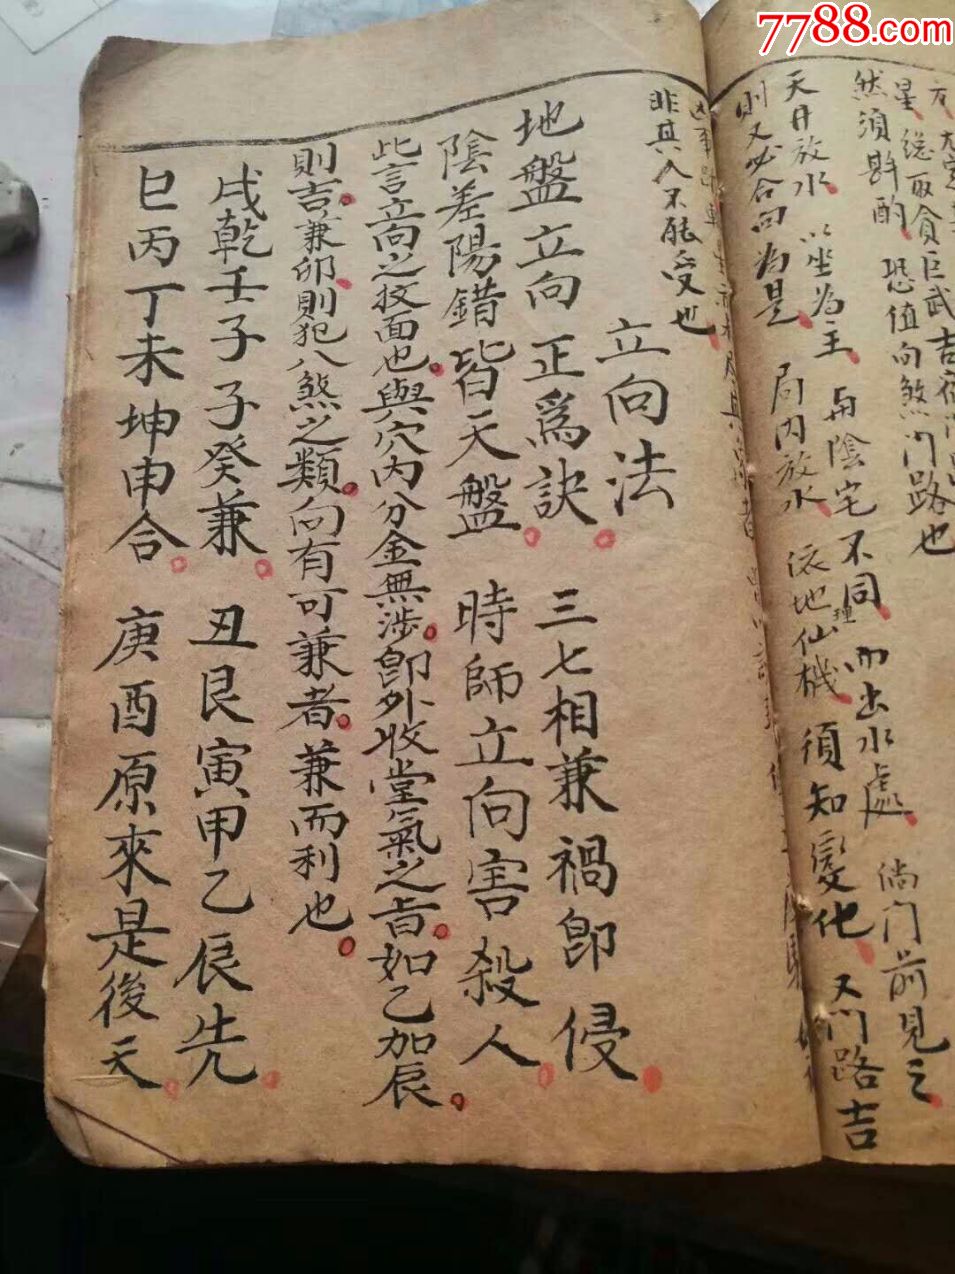 7788.com
星總取貪巨武吉宿
然須斟酌恐值向煞门路也
天井放水以坐為主與陰宅不同而出水處倘门前見之
則又必合向為是局内放水依地理仙機須知變化又门路吉
非其人不能受也
立向法
地盤立向正爲訣三七相兼禍即侵
陰差陽錯皆天盤時師立向害殺人
此言立向之技面也與穴内分金無涉即外收堂氣之旨如乙加辰
則吉兼卯則犯八煞之類向有可兼者兼而利也
戌乾壬子子癸兼丑艮寅甲乙辰先
巳丙丁未坤申合庚酉原來是後天